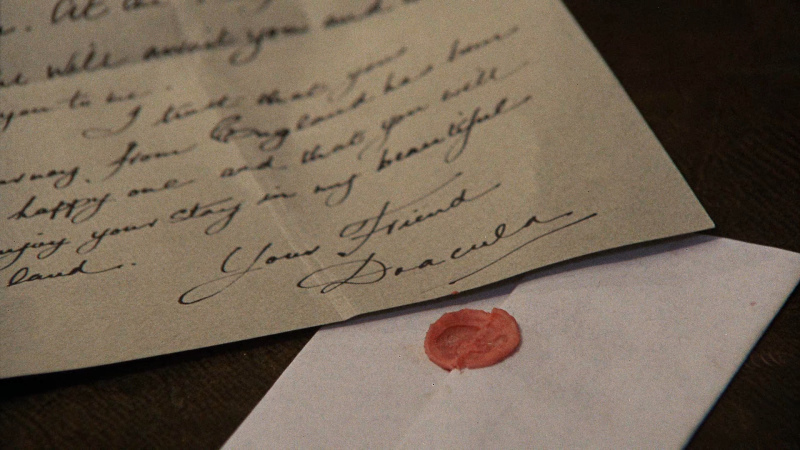 . At the
we will await you and
you to me.
I trust that your
journey, from England has been
happy one and that you will
enjoy your stay in my beautiful
land.
Your Friend
Dracula